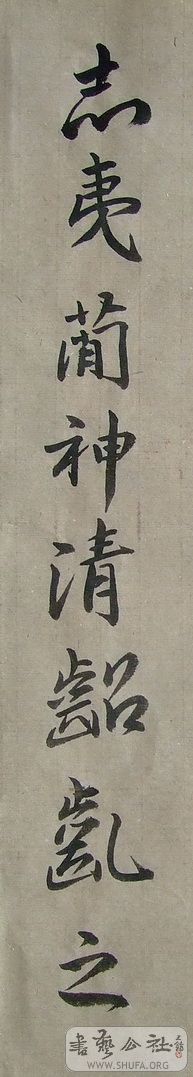 志夷簡神清齠齔之
書藝公社
WWW.SHUFA.ORG